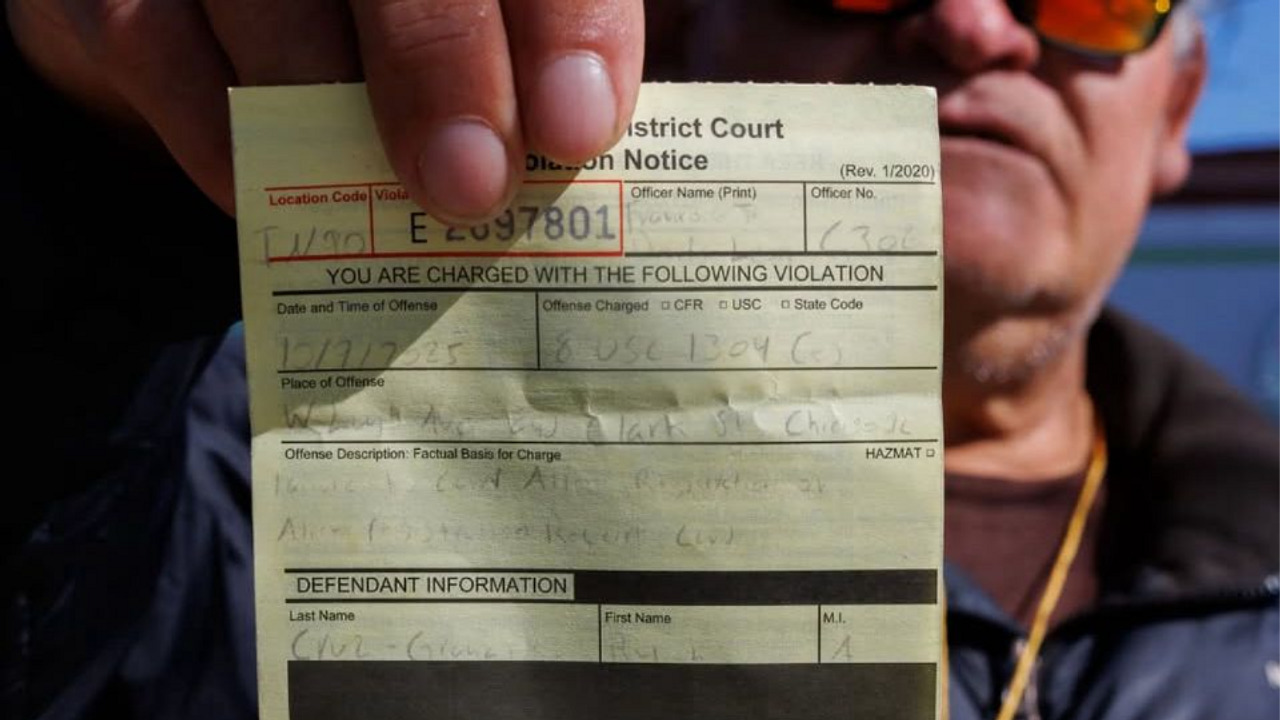 istrict Court
olation Notice
(Rev. 1/2020)
Location Code Viola Officer Name (Print) Officer No.
E 2097801
YOU ARE CHARGED WITH THE FOLLOWING VIOLATION
Date and Time of Offense Offense Charged □ CFR □ USC □ State Code
10/7/2025 8 USC 1304 (e)
Place of Offense
Ave Clark St Chicago IL
Offense Description: Factual Basis for Charge HAZMAT □
Alien
Alien Registration
DEFENDANT INFORMATION
Last Name First Name M.I.
Cruz - A